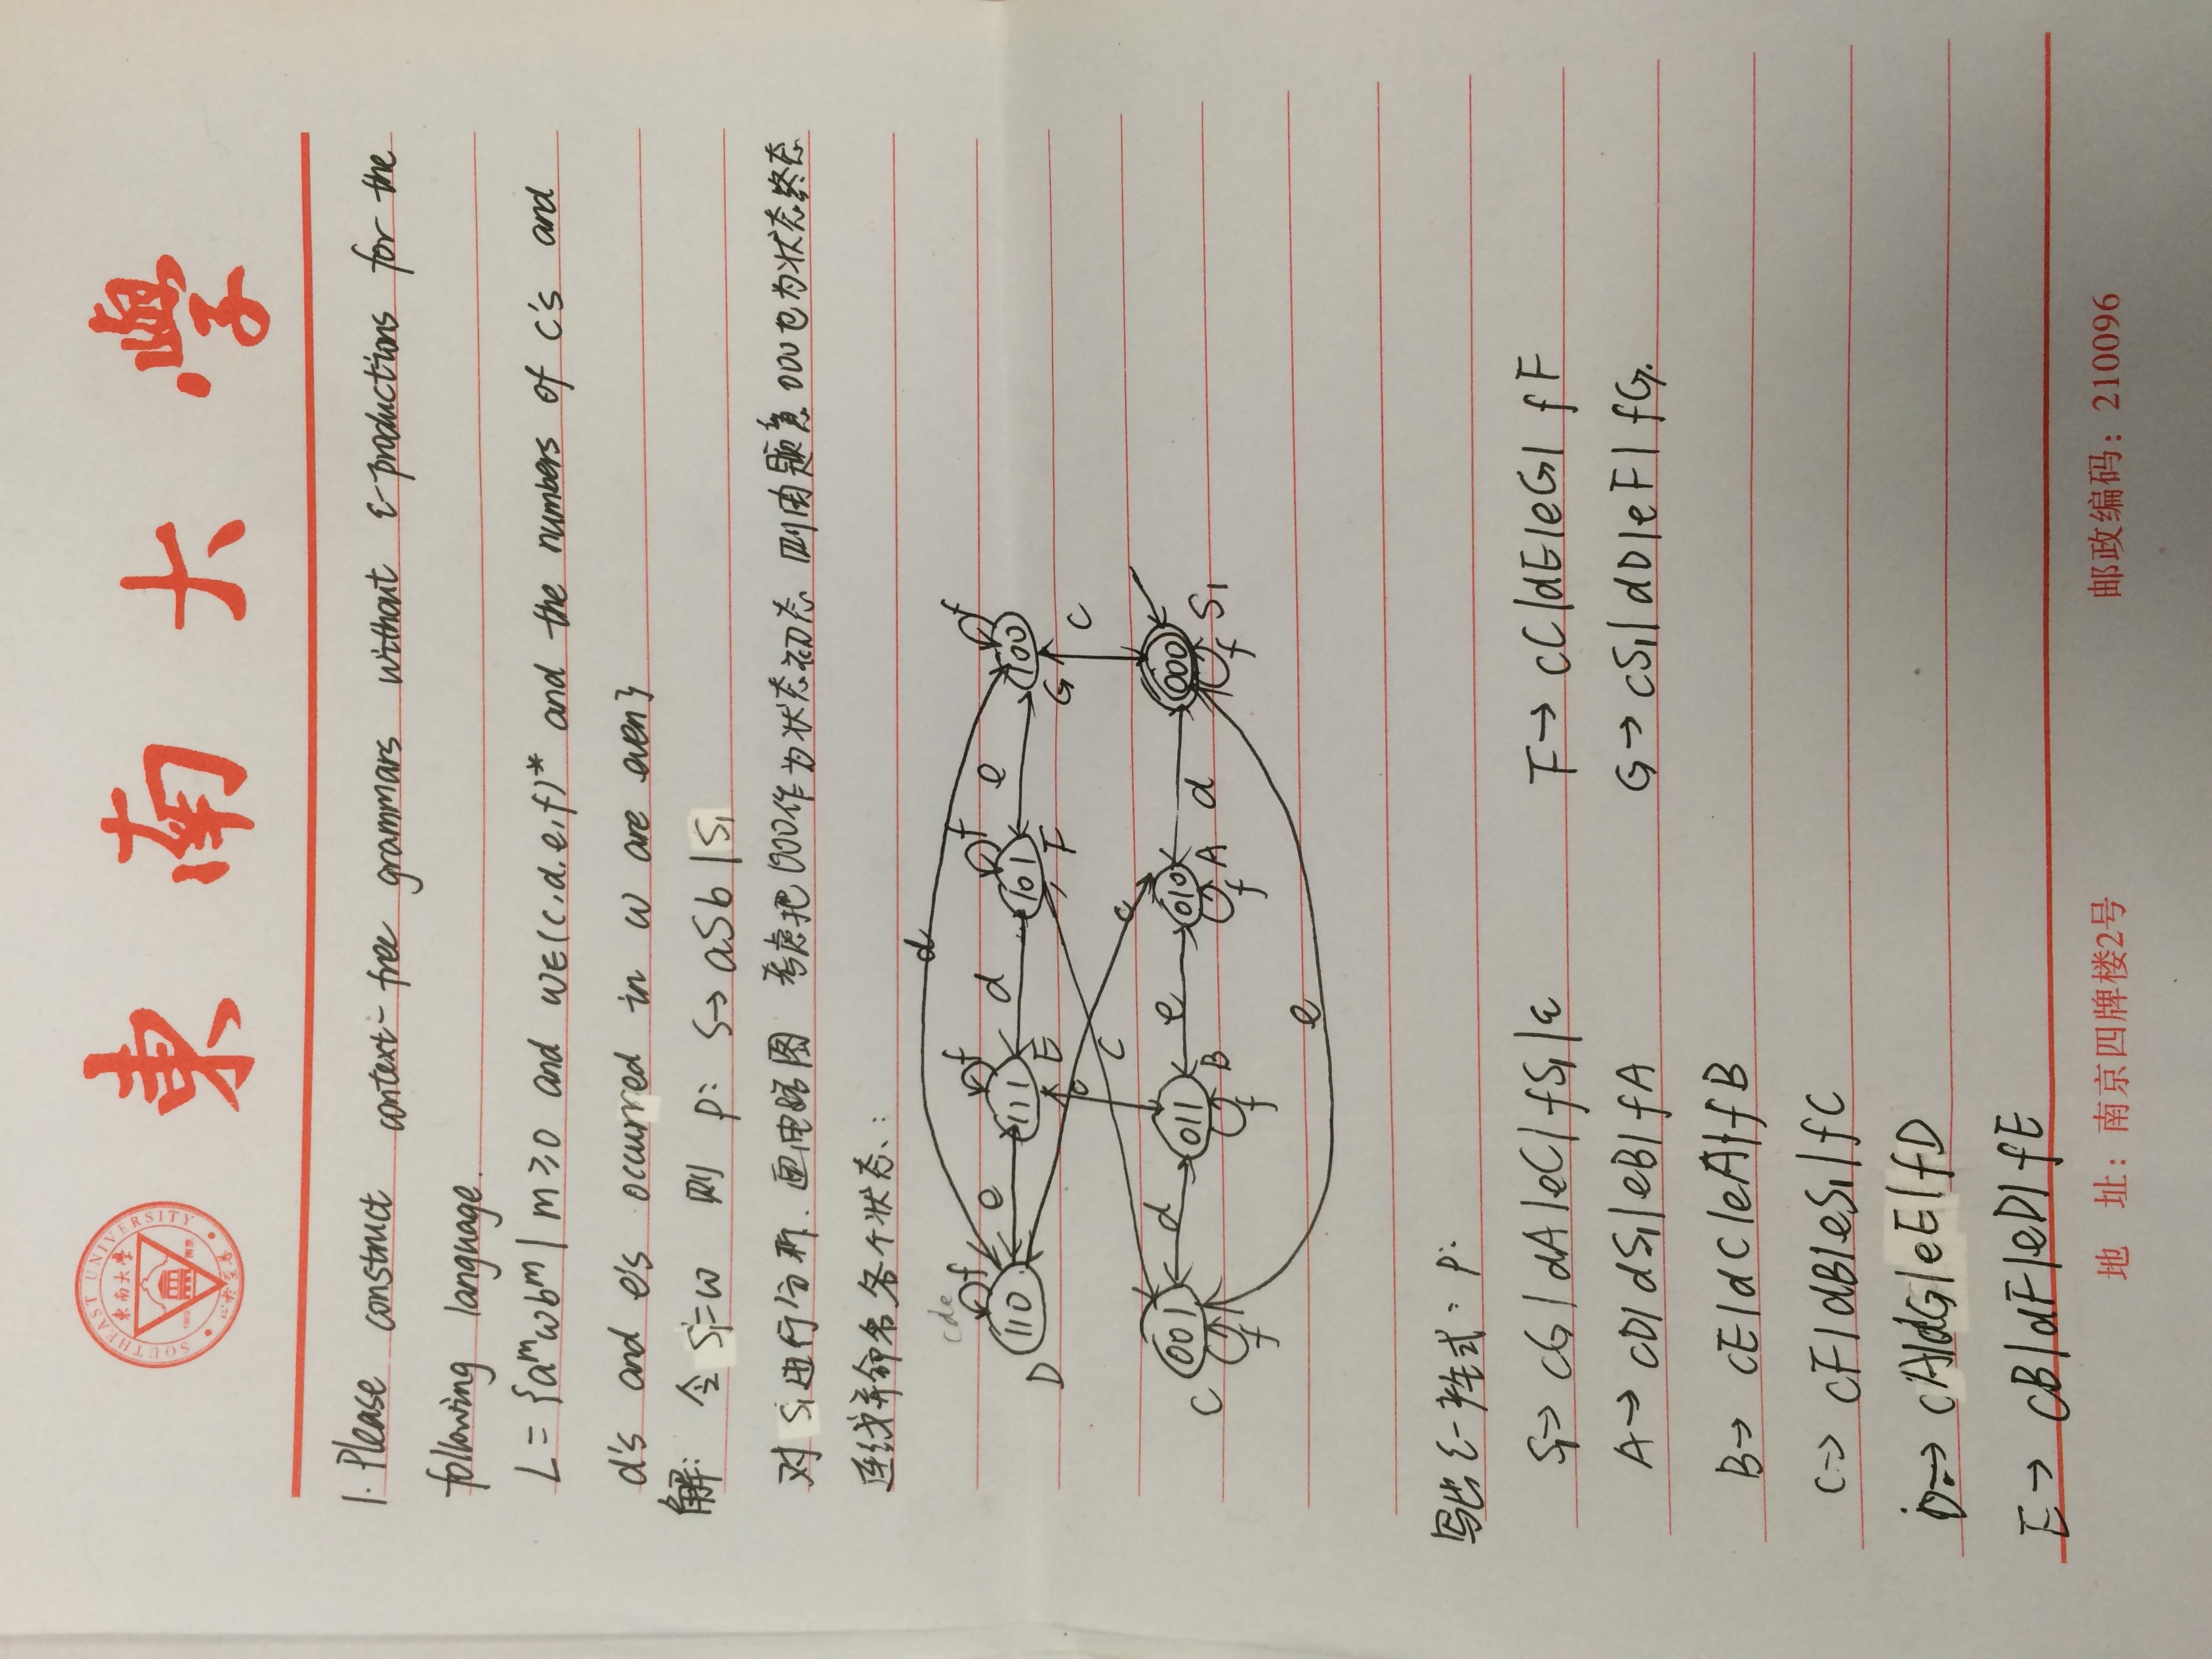 SOUTHEAST UNIVERSITY
東南大學
1902 南京
東南大學
1. Please construct context-free grammars without ε-productions for the
following language.
L = {aᵐωbᵐ | m≥0 and ω∈(c,d,e,f)* and the numbers of c's and
d's and e's occurred in ω are even}
解: 令 S₁=ω 则 P: S→ aSb | S₁
对 S₁进行分析. 画电路图 考虑把000作为状态初态 则由题意000也为状态终态
连线并命名各个状态:
d
cde f f f f
110 e 111 d 101 e 100
D E F G
c c c c
001 d 011 e 010 d 000
C B A S₁
f f f f
e
写出ε-产生式: P:
S₁→ cG | dA | eC | fS₁ | ε F→ cC | dE | eG | fF
A→ cD | dS₁ | eB | fA G→ cS₁ | dD | eF | fG.
B→ cE | dC | eA | fB
C→ cF | dB | eS₁ | fC
D→ cA | dG | eE | fD
E→ cB | dF | eD | fE
地 址: 南京四牌楼2号 邮政编码: 210096